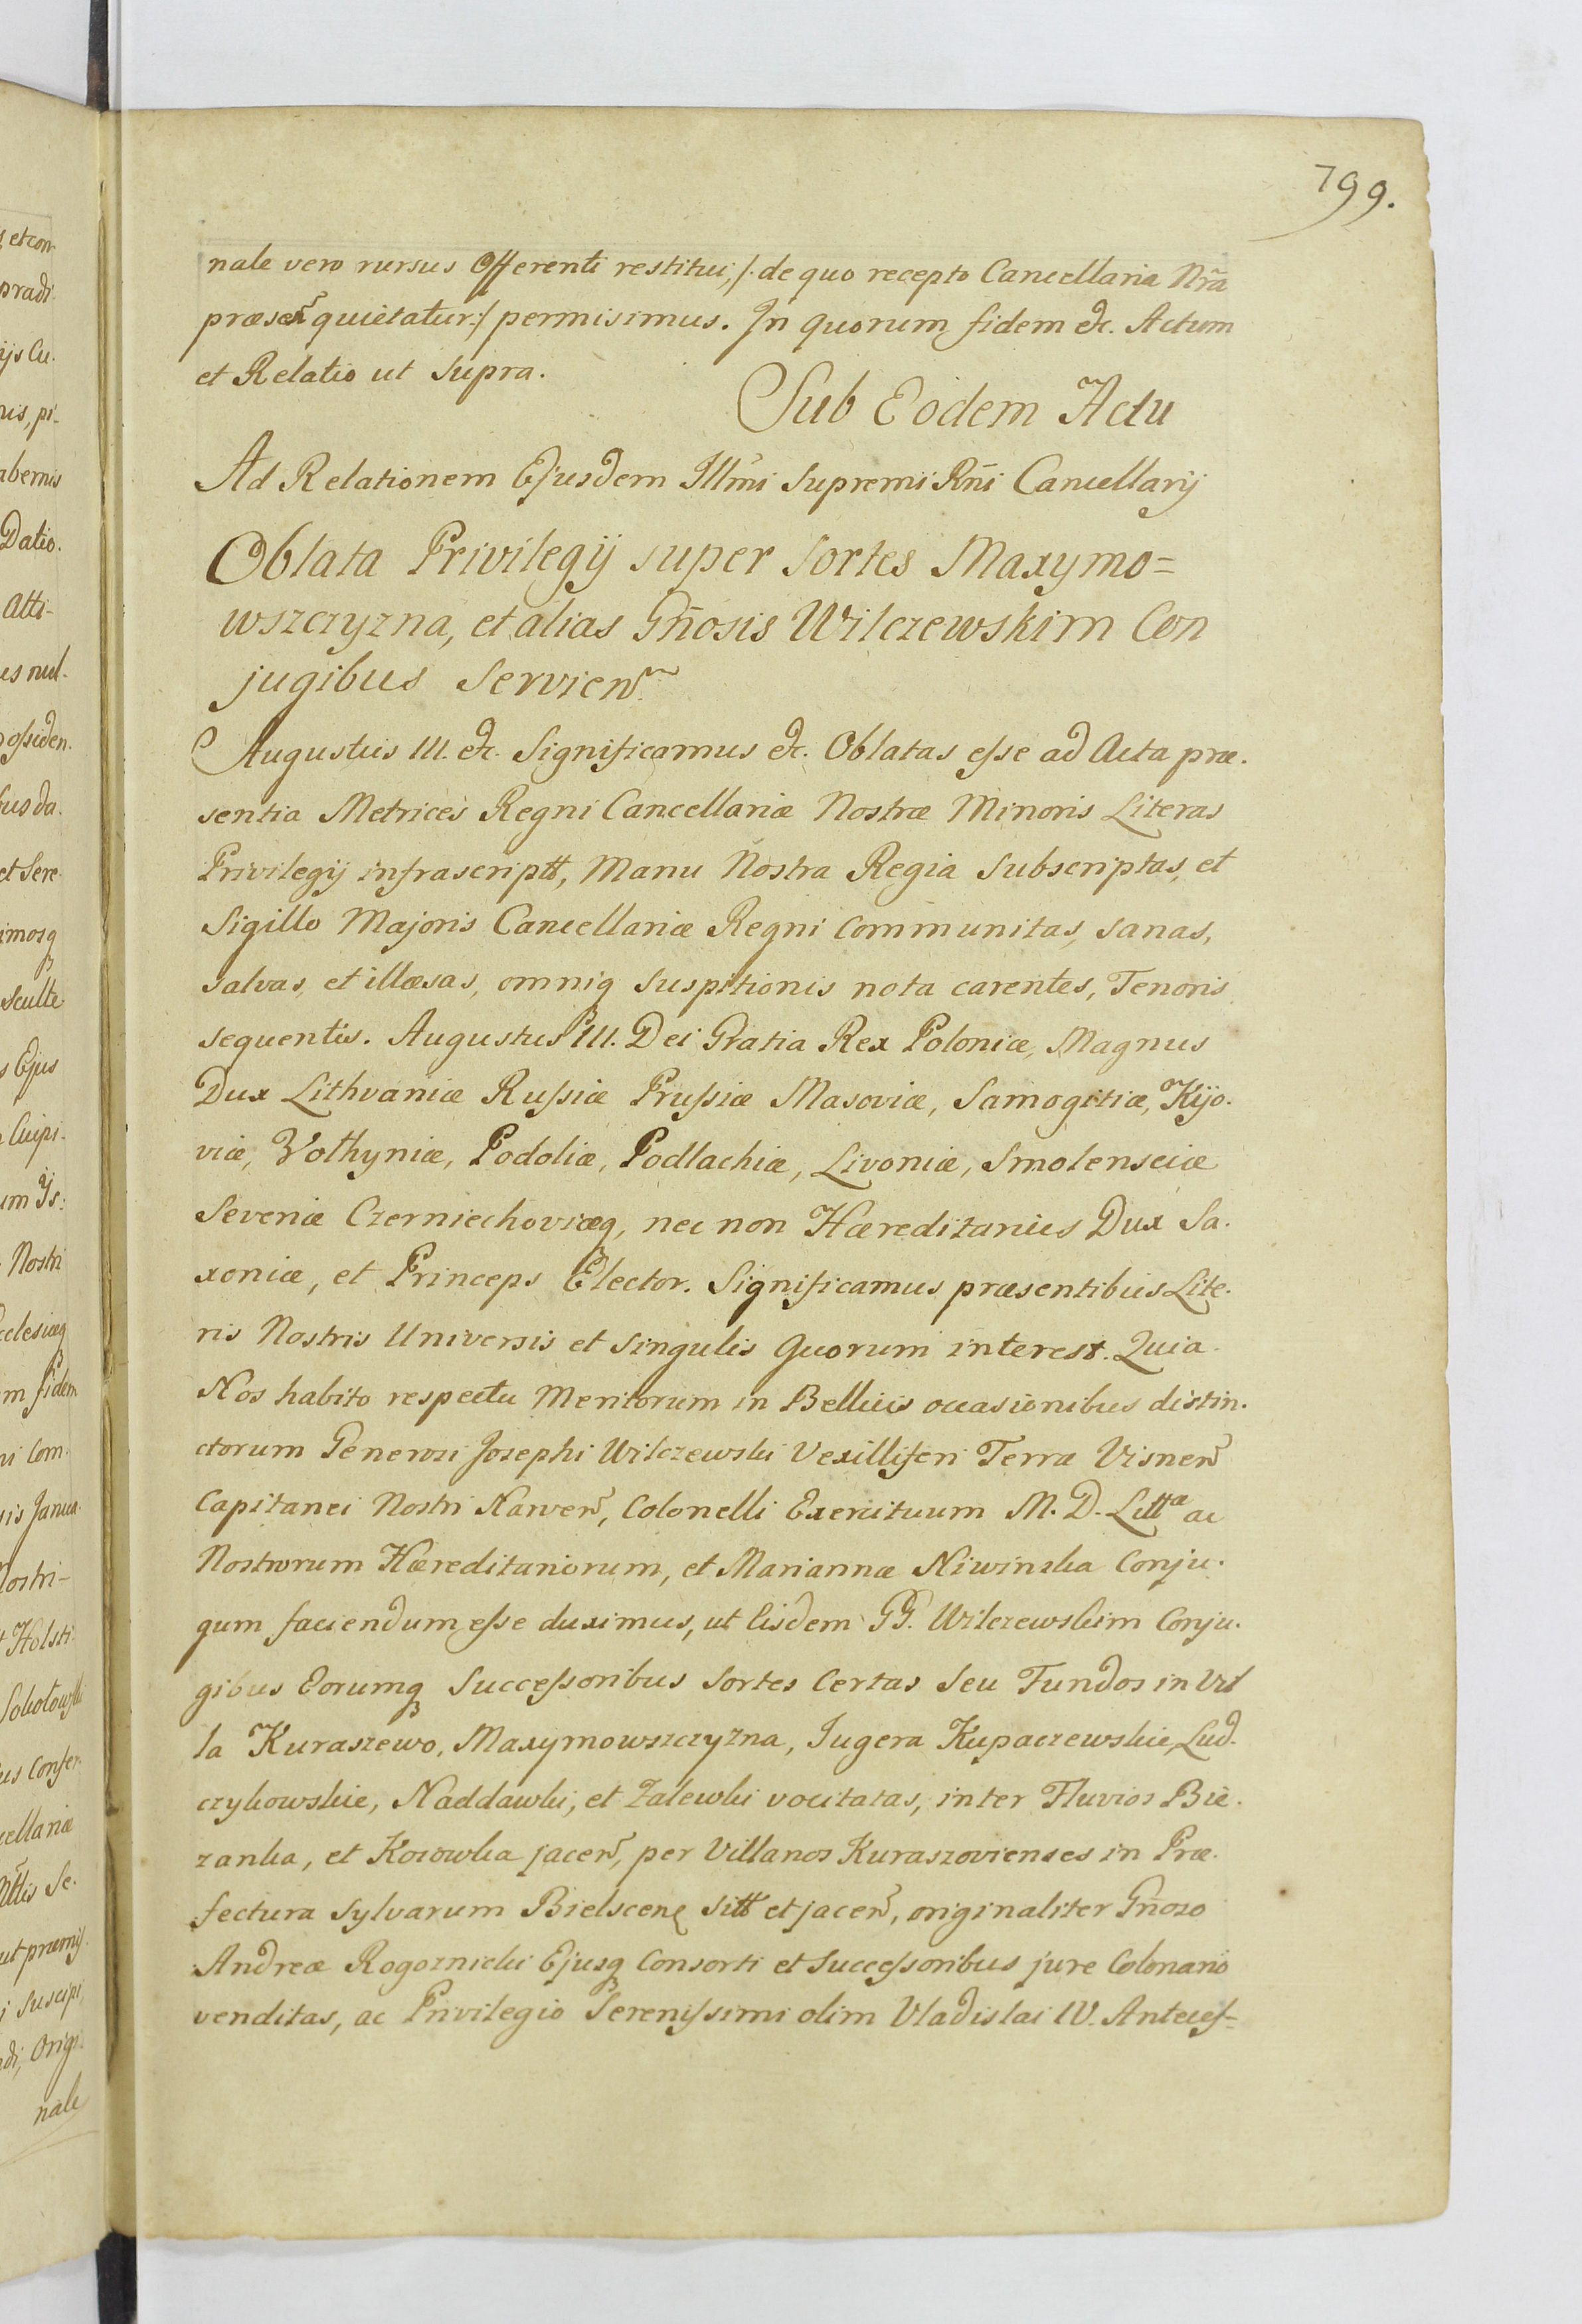 799.
nale vero rursus Offerenti restitui, /: de quo recepto Cancellaria Nr̃a
præseñ quietatur :/ permisimus. In quorum fidem &c. Actum
et Relatio ut supra.
Sub Eodem Actu
Ad Relationem Ejusdem Illm̃i Supremi Rñi Cancellarij
Oblata Privilegij super sortes Maxymo=
wszczyzna, et alias Gñosis Wilczewskim Con
jugibus Servieñ
Augustus III. &c. Significamus &c. Oblatas esse ad Acta præ.
sentia Metrices Regni Cancellariæ Nostræ Minoris Literas
Privilegij infrascriptt, Manu Nostra Regia Subscriptas, et
Sigillo Majoris Cancellariæ Regni communitas, sanas,
salvas, et illæsas, omniq suspitionis nota carentes, Tenoris
sequentis. Augustus III. Dei Gratia Rex Poloniæ, Magnus
Dux Lithvaniæ Russiæ Prussiæ Masoviæ, Samogitiæ, Kijo.
viæ, Volhyniæ, Podoliæ, Podlachiæ, Livoniæ, Smolensciæ
Severiæ Czerniechoviæq, nec non Hæreditarius Dux Sa.
xoniæ, et Princeps Elector. Significamus præsentibus Lite.
ris Nostris Universis et singulis quorum interest. Quia
Nos habito respectu Meritorum in Bellicis occasionibus distin.
ctorum Generosi Josephi Wilczewski Vexilliferi Terræ Visneñ
Capitanei Nostri Narveñ, Colonelli Exercituum M. D. Littæ ac
Nostrorum Hæreditariorum, et Mariannæ Niwinska Conju.
gum faciendum esse duximus, ut Eisdem GG. Wilczewskim Conju.
gibus Eorumq Successoribus Sortes Certas Seu Fundos in Vil
la Kuraszewo, Maxymowszczyzna, Jugera Kupaczewskie, Lud.
czykowskie, Naddawki, et Zalewki vocitatas, inter Fluvios Bie.
zanka, et Kozowka jaceñ, per Villanos Kuraszovienses in Præ.
fectura Sylvarum Bielsceñ Sitt et jaceñ, originaliter Gñoso
Andreæ Rogoznicki Ejusq Consorti et Successoribus jure Colonario
venditas, ac Privilegio Serenissimi olim Vladislai IV. Anteces=